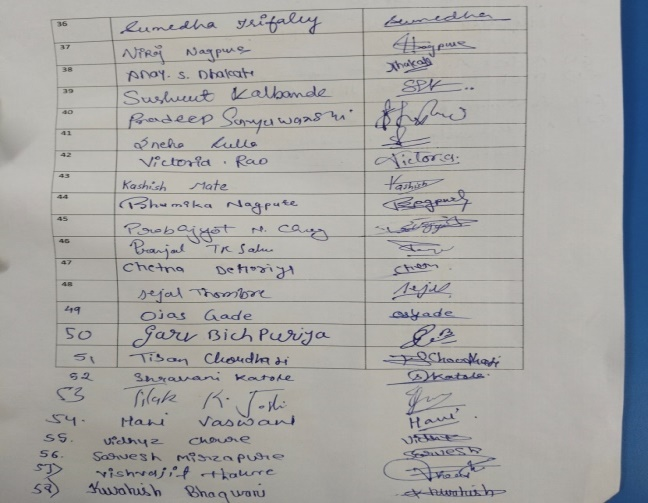 36 Sumedha Trifaley Sumedha
37 Niraj Nagpure Nagpure
38 Anay. S. Dhakate Dhakate
39 Sushrut Kalbande SPK
40 Pradeep Suryawanshi
41 Sneha Lulla
42 Victoria . Rao Victoria.
43 Kashish Mate Kashish
44 Bhumika Nagpure
45 Prabajyot N.
46 Pranjal TK Sahu
47 Chetna
48 Sejal Thombre Sejal
49 Ojas Gade
50 Garv BichPuriya
51 Tisan Choudhari Choudhari
52 Shravani Katole S Katole.
53 Tilak K. Joshi
54. Mani Vaswani Mani
55. Vidhyz
56. Sarvesh Mirzapure Sarvesh
57) Vishvajit Thakre
58) Kwahish Bhagwani Kwahish